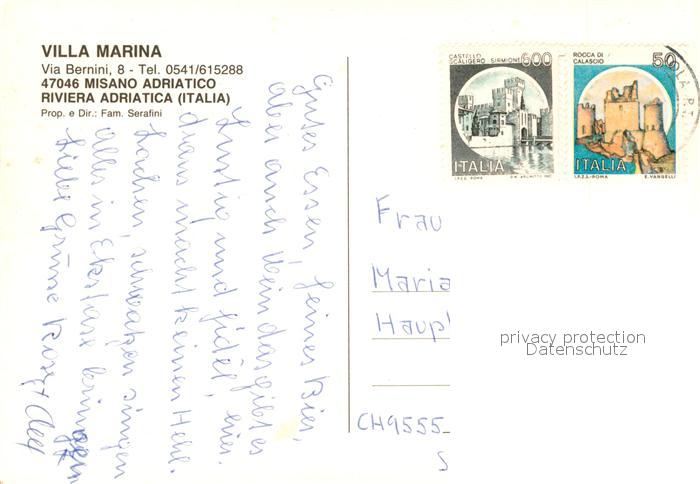 VILLA MARINA
Via Bernini, 8 - Tel. 0541/615288
47046 MISANO ADRIATICO
RIVIERA ADRIATICA (ITALIA)
Prop. e Dir.: Fam. Serafini
CASTELLO
SCALIGERO - SIRMIONE 600
ITALIA
I.P.Z.S. ROMA
ROCCA DI
CALASCIO 50
ITALIA
I.P.Z.S.-ROMA E. VANGELLI
Gutes Essen, feines Bier,
aber auch Wein das gibt es
Lustig und fidel, hier
draus macht keinen Hehl.
Lachen, schwatzen singen
alles in Ekstase bringen
Liebe Grüsse
Frau
Maria
Haupt
CH9555
S
privacy protection
Datenschutz